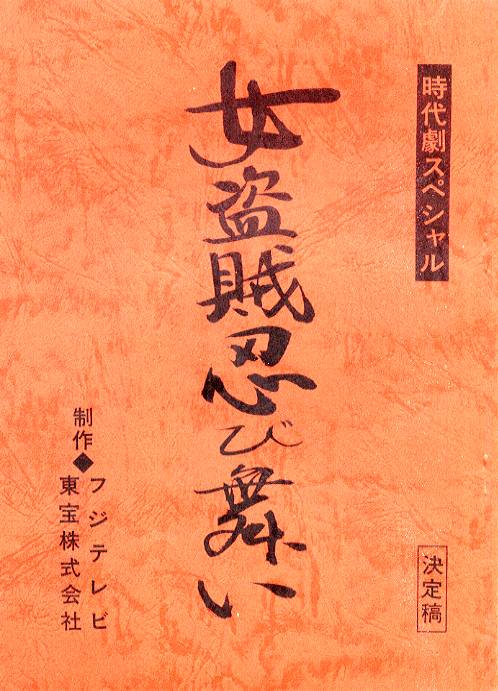 時代劇スペシャル
決定稿
女盗賊忍び舞い
制作◆フジテレビ
東宝株式会社